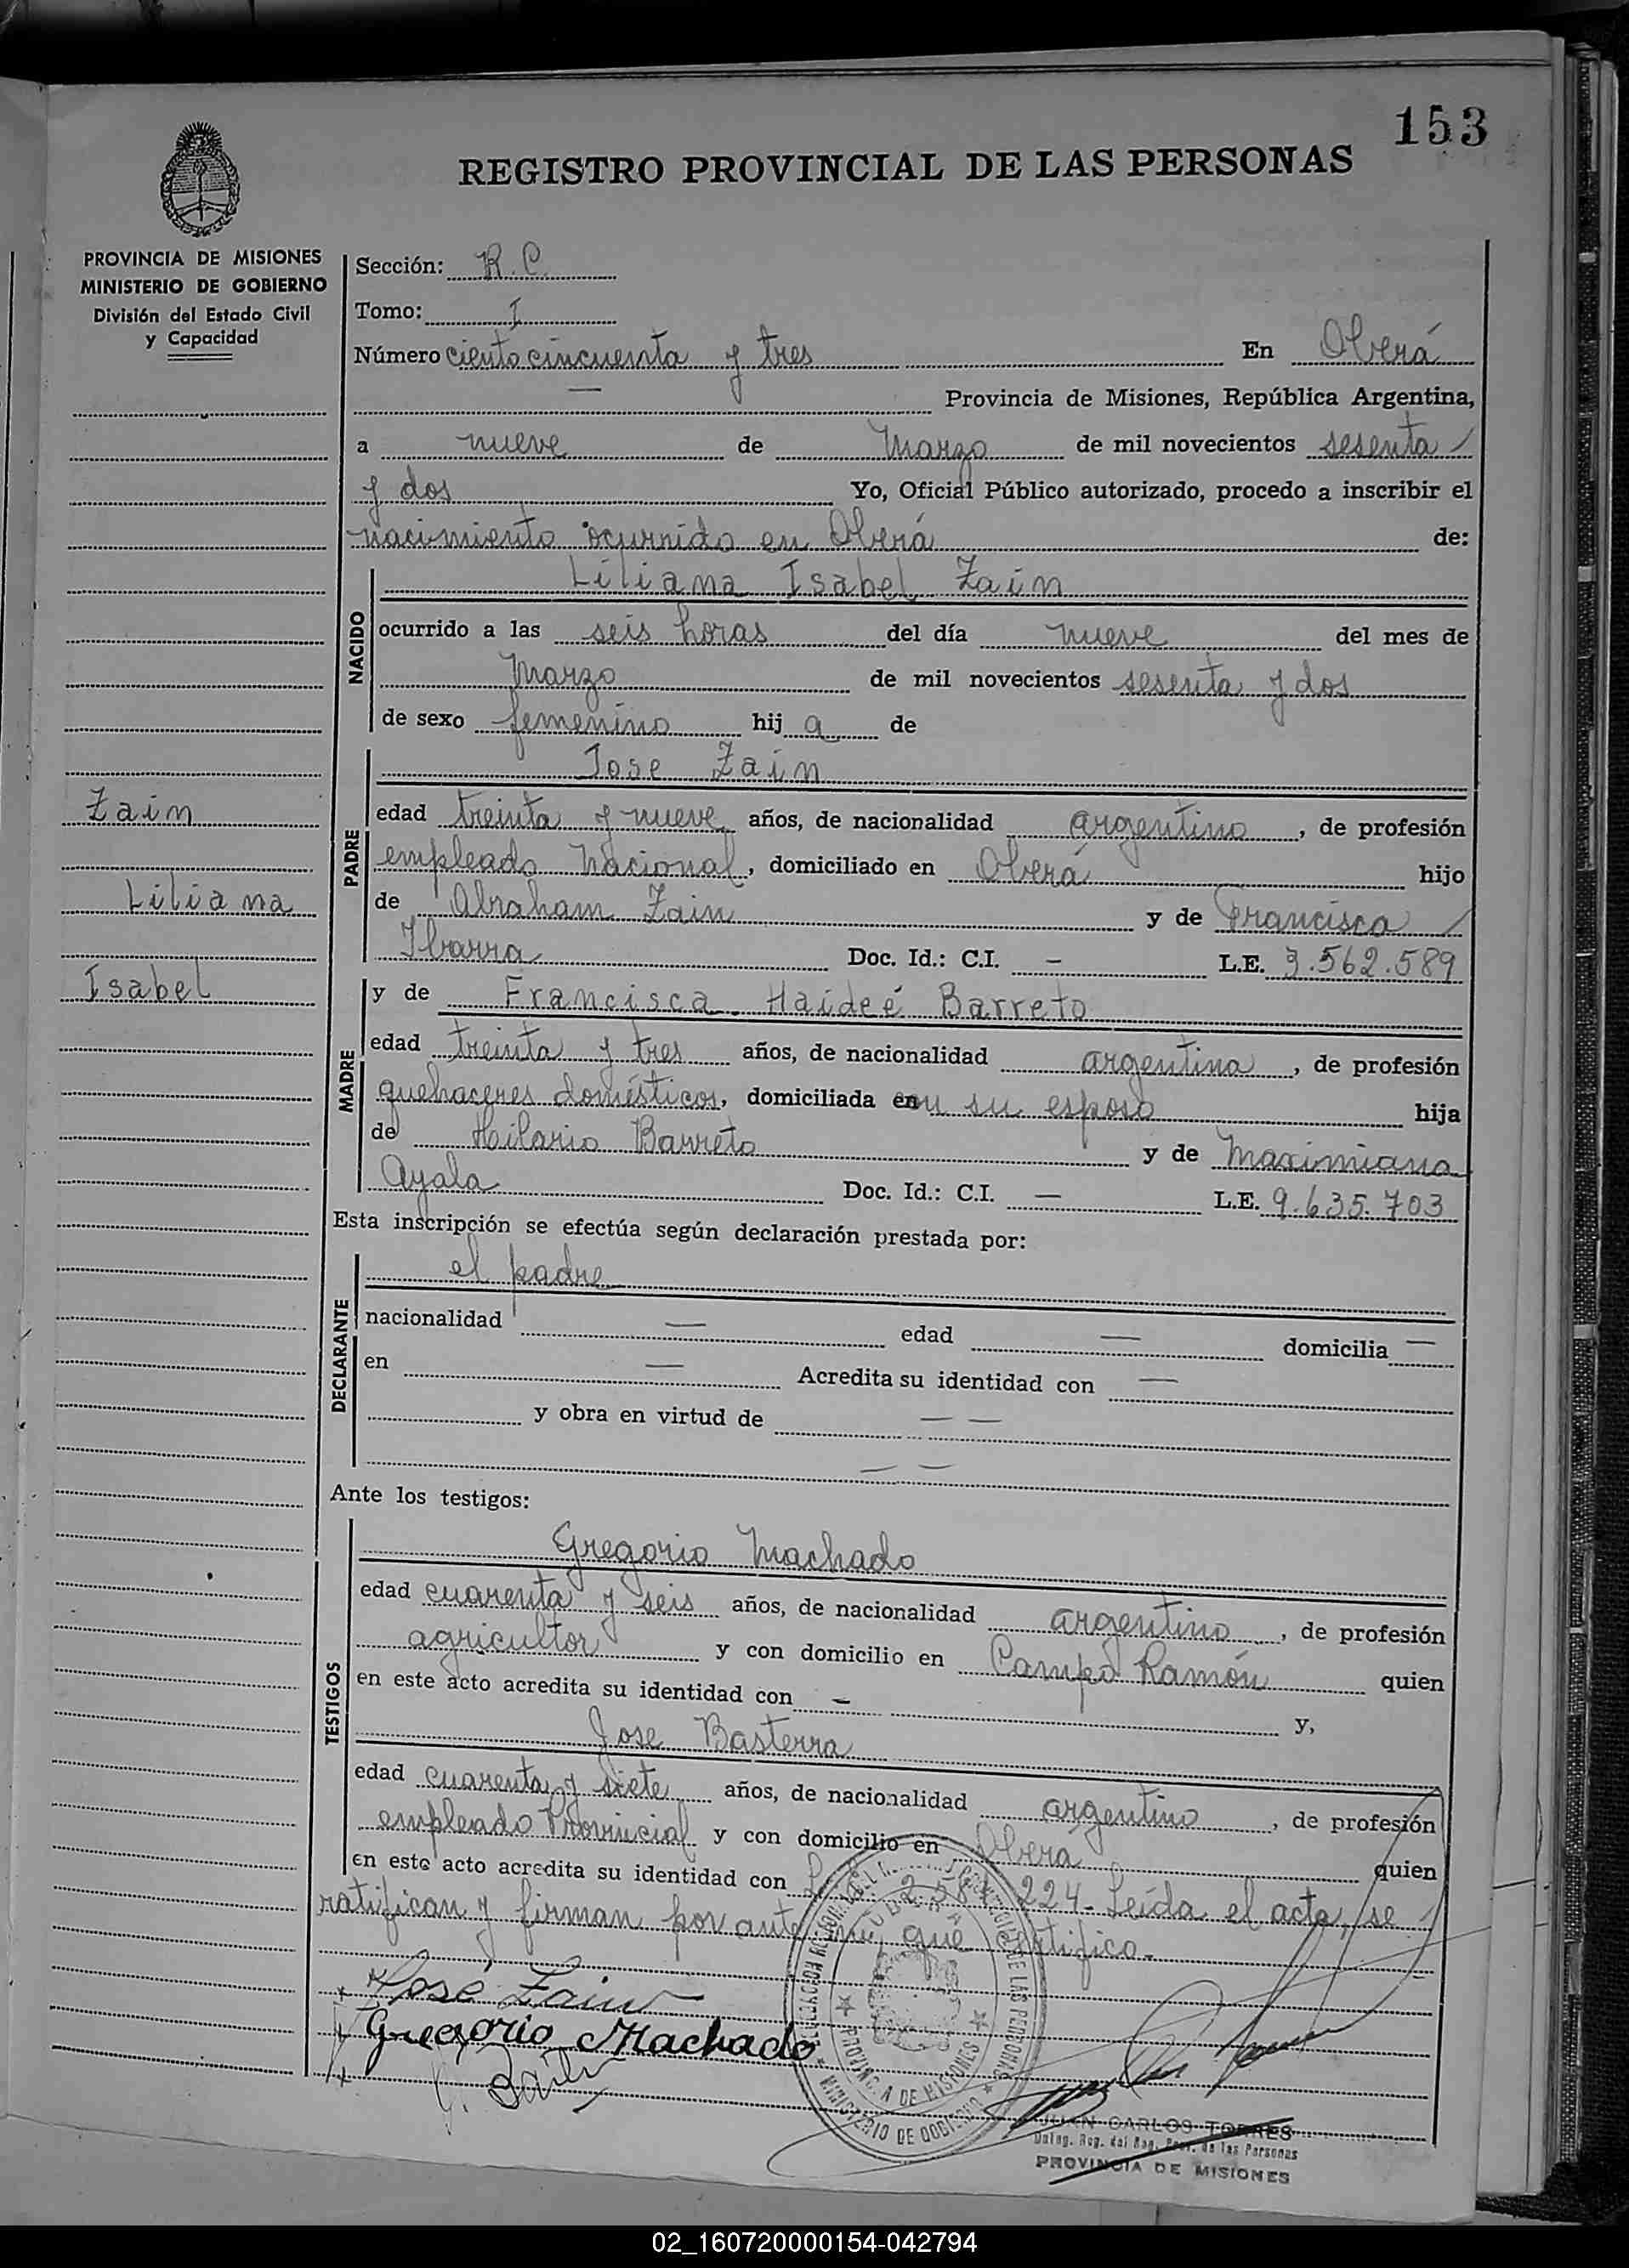 153
REGISTRO PROVINCIAL DE LAS PERSONAS
PROVINCIA DE MISIONES
MINISTERIO DE GOBIERNO
División del Estado Civil
y Capacidad
Sección: R. C.
Tomo: I
Número ciento cincuenta y tres En Oberá
— Provincia de Misiones, República Argentina,
a nueve de Marzo de mil novecientos sesenta
y dos Yo, Oficial Público autorizado, procedo a inscribir el
nacimiento ocurrido en Oberá de:
NACIDO
Liliana Isabel Zain
ocurrido a las seis horas del día nueve del mes de
Marzo de mil novecientos sesenta y dos
de sexo femenino hij a de
PADRE
Jose Zain
edad treinta y nueve años, de nacionalidad argentino, de profesión
empleado Nacional, domiciliado en Oberá hijo
de Abraham Zain y de Francisca
Ibarra Doc. Id.: C.I. — L.E. 3.562.589
Zain
Liliana
Isabel
MADRE
y de Francisca Haideé Barreto
edad treinta y tres años, de nacionalidad argentina, de profesión
quehaceres domésticos, domiciliada en su esposo hija
de Hilario Barreto y de Maximiana
Ayala Doc. Id.: C.I. — L.E. 9.635.703
Esta inscripción se efectúa según declaración prestada por:
DECLARANTE
el padre
nacionalidad — edad — domicilia —
en — Acredita su identidad con —
y obra en virtud de — —
— —
Ante los testigos:
TESTIGOS
Gregorio Machado
edad cuarenta y seis años, de nacionalidad argentino, de profesión
agricultor y con domicilio en Campo Ramón quien
en este acto acredita su identidad con — y,
Jose Basterra
edad cuarenta y siete años, de nacionalidad argentino, de profesión
empleado Provincial y con domicilio en Oberá quien
en este acto acredita su identidad con 224. Leída el acta, se
ratifican y firman por ante mi, que certifico.
José Zain
Gregorio Machado
PROVINCIA DE MISIONES
MINISTERIO DE GOBIERNO
JUAN CARLOS TORRES
de las Personas
PROVINCIA DE MISIONES
02_160720000154-042794